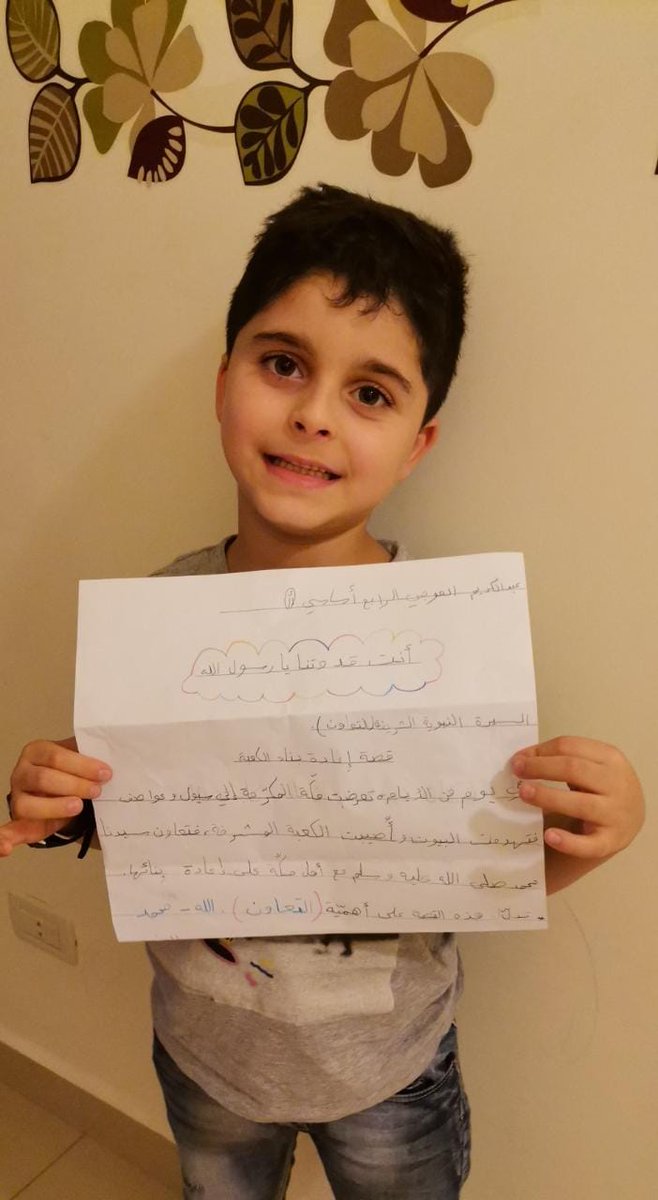 عبدالكريم العوضي الرابع أساسي (أ)
أنت قدوتنا يا رسول الله
السيرة النبوية الشريفة (التعاون).
قصة إعادة بناء الكعبة
في يوم من الأيام، تعرضت مكّة المكرّمة إلى سيول وعواصف
فتهدمت البيوت وأُصيبت الكعبة المشرّفة، فتعاون سيدنا
محمد صلى الله عليه وسلم مع أهل مكّة على إعادة بنائها.
* تدلّ هذه القصة على أهميّة (التعاون). الله - محمد